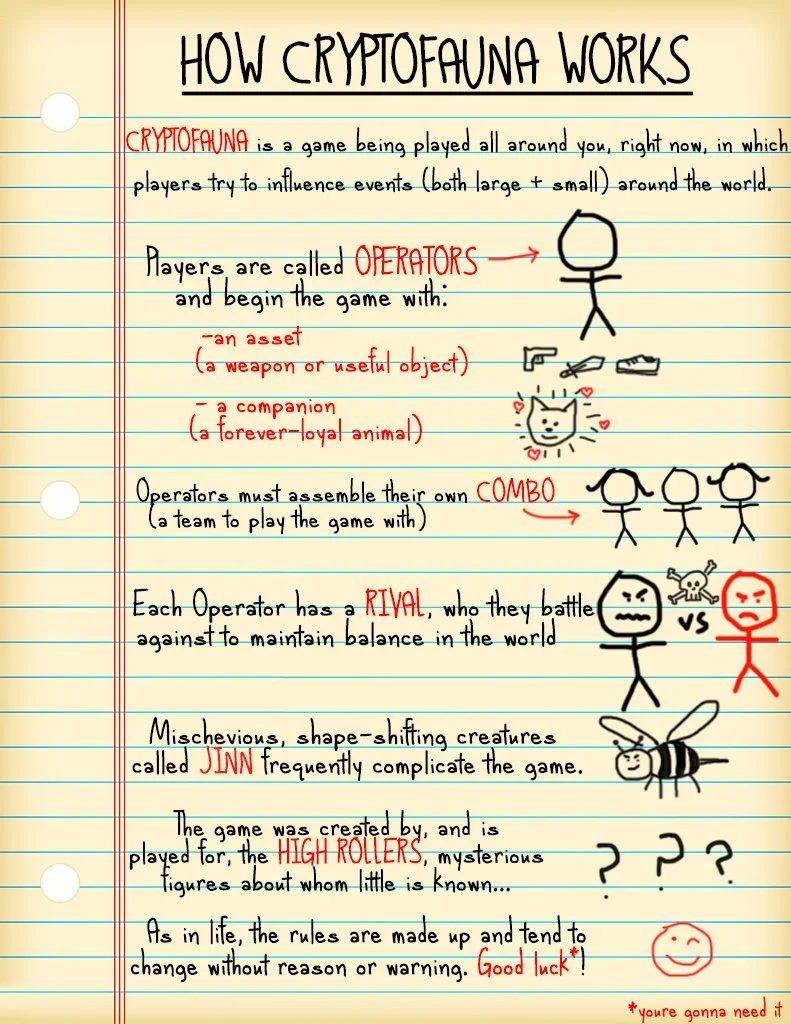 HOW CRYPTOFAUNA WORKS
CRYPTOFAUNA is a game being played all around you, right now, in which
players try to influence events (both large + small) around the world.
Players are called OPERATORS
and begin the game with:
-an asset
(a weapon or useful object)
- a companion
(a forever-loyal animal)
Operators must assemble their own COMBO
(a team to play the game with)
Each Operator has a RIVAL, who they battle
against to maintain balance in the world
VS
Mischevious, shape-shifting creatures
called JINN frequently complicate the game.
The game was created by, and is
played for, the HIGH ROLLERS, mysterious
figures about whom little is known...
? ? ?
As in life, the rules are made up and tend to
change without reason or warning. Good luck*!
*youre gonna need it